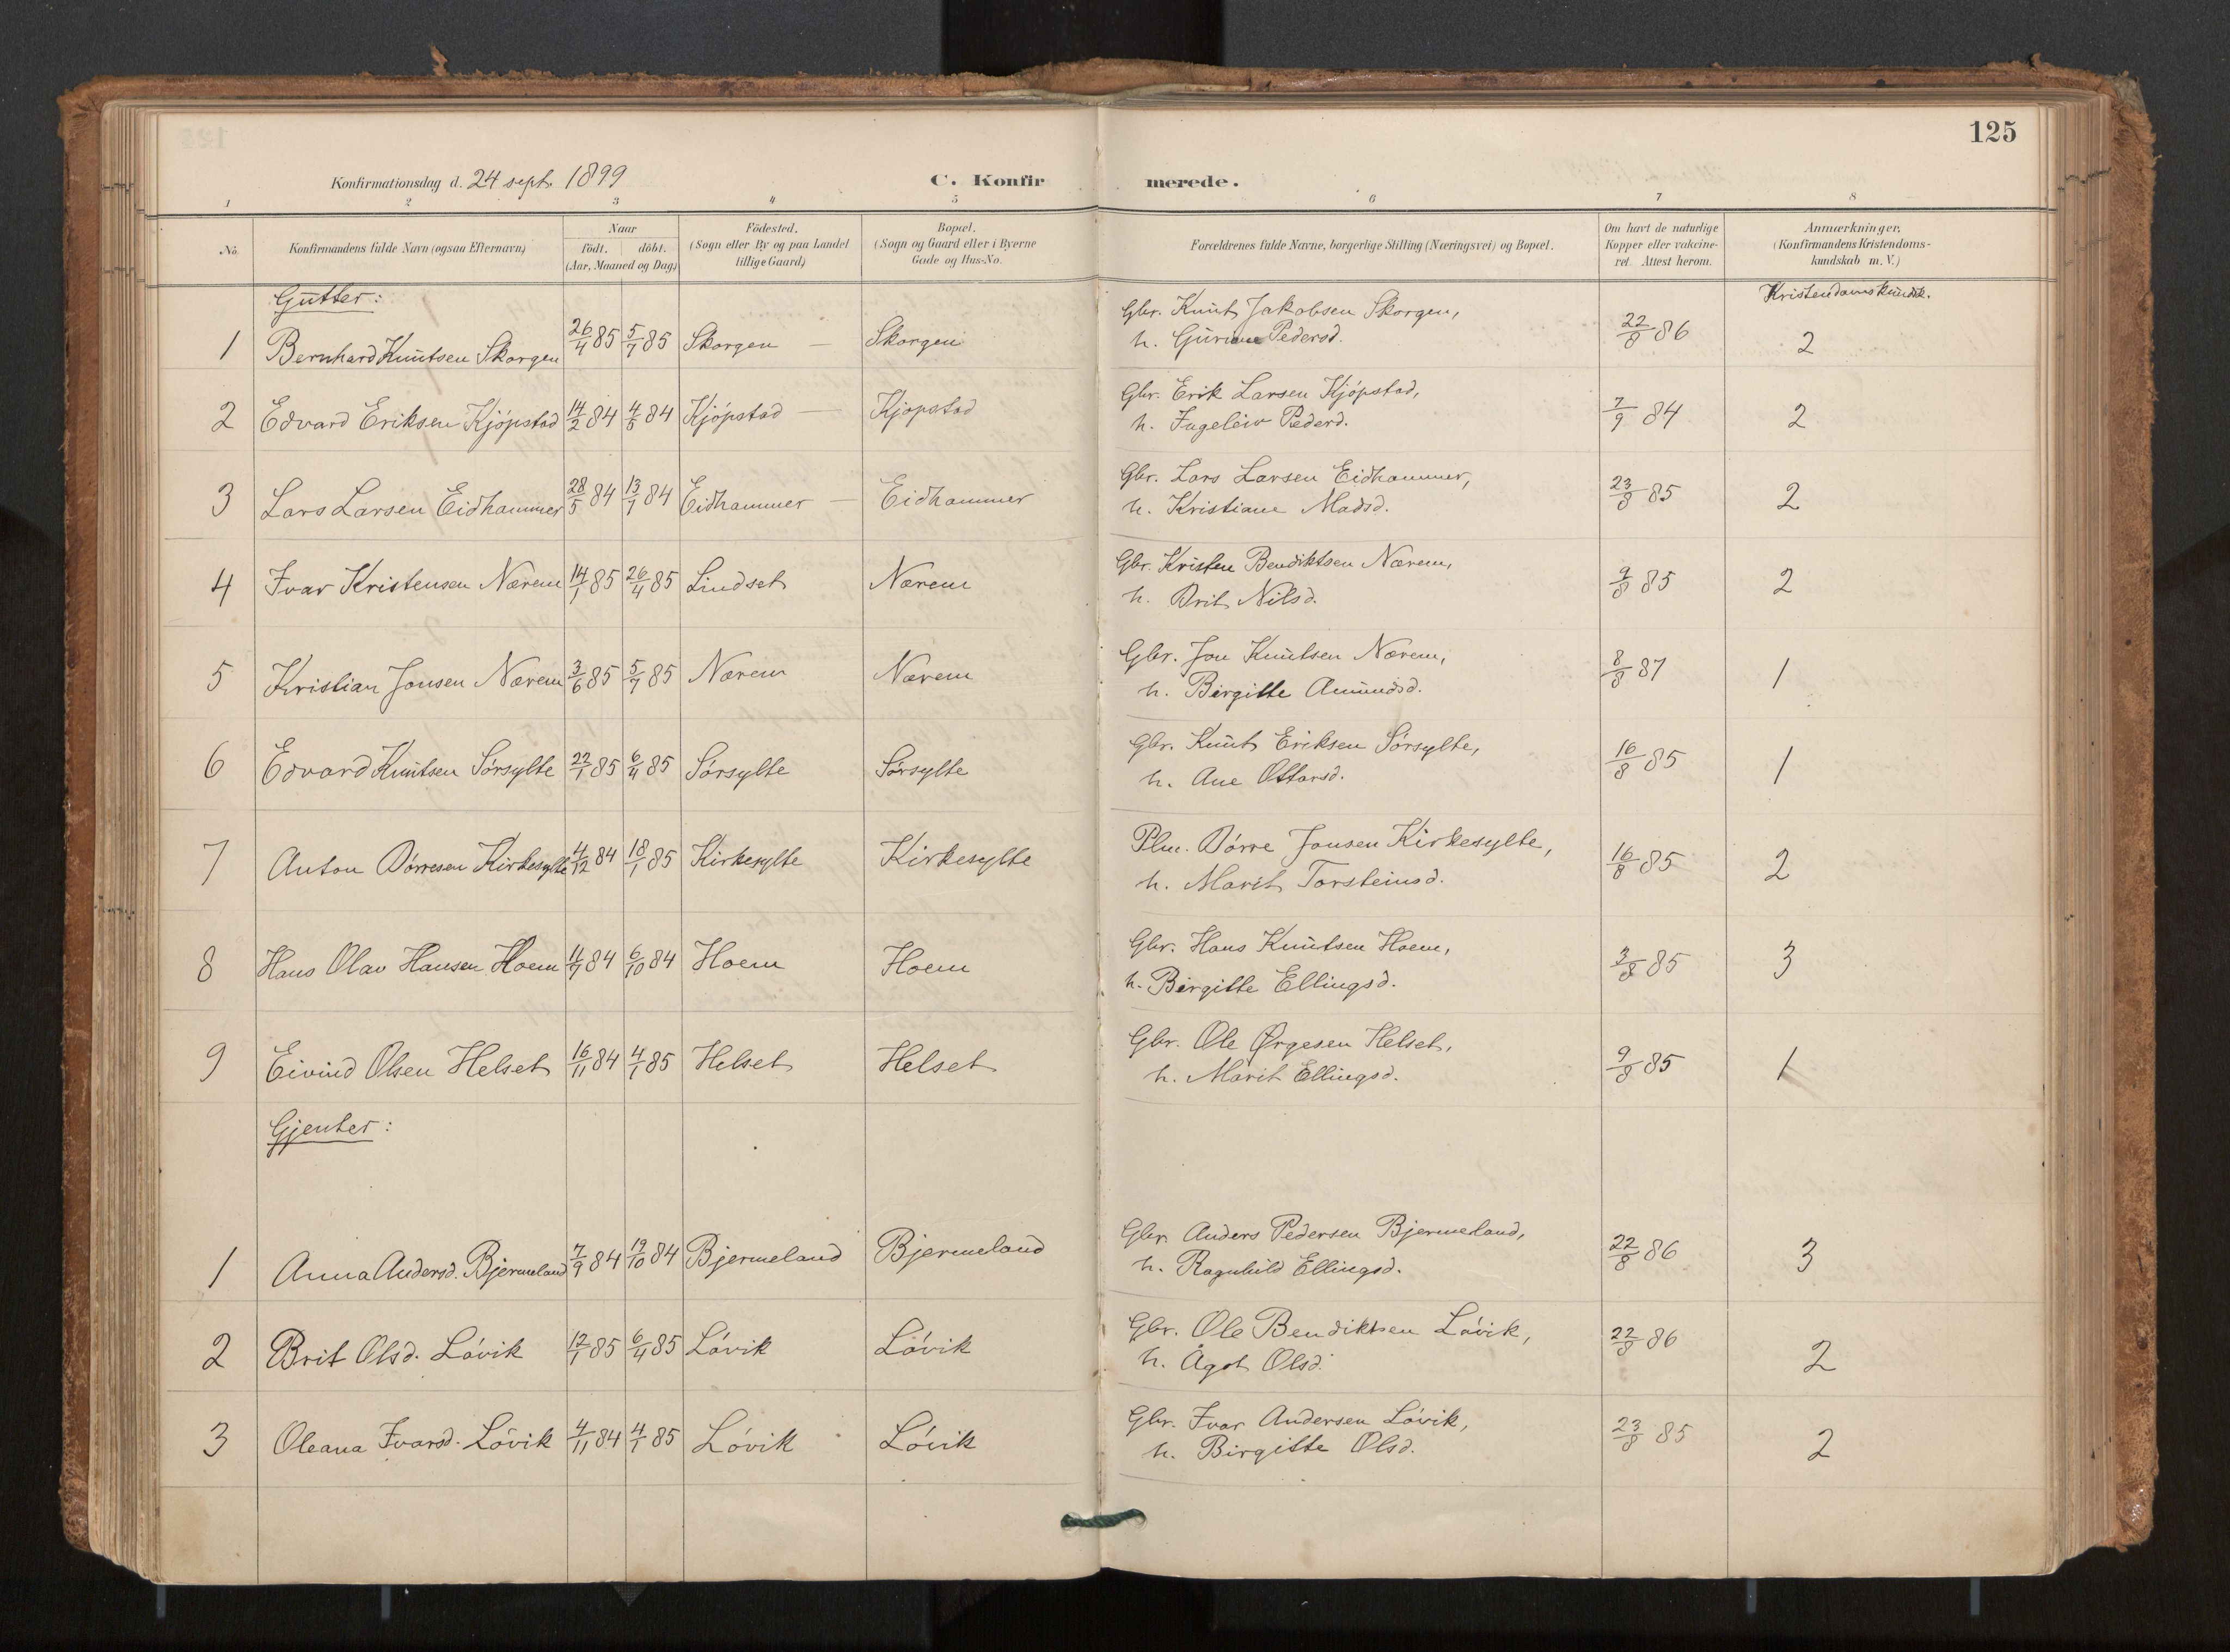 125
Konfirmationsdag d. 24 sept. 1899
C. Konfirmerede.
1 2 3 4 5 6 7 8
No. Konfirmandens fulde Navn (ogsaa Efternavn) Naar födt. döbt. (Aar, Maaned og Dag) Födested. (Sogn eller By og paa Landet tillige Gaard) Bopæl. (Sogn og Gaard eller i Byerne Gade og Hus-No. Forældrenes fulde Navne, borgerlige Stilling (Næringsvei) og Bopæl. Om havt de naturlige Kopper eller vakcineret. Attest herom. Anmærkninger, (Konfirmandens Kristendomskundskab m. V.)
Gutter: Kristendomskundsk.
1 Bernhard Knutsen Skorgen 26/4 85 5/7 85 Skorgen — Skorgen Gbr. Knut Jakobsen Skorgen, 22/8 86 2
h. Guriane Pedersd.
2 Edvard Eriksen Kjöpstad 14/2 84 4/5 84 Kjöpstad — Kjöpstad Gbr. Erik Larsen Kjöpstad, 7/9 84 2
h. Ingeleiv Pederd.
3 Lars Larsen Eidhammer 28/5 84 13/7 84 Eidhammer — Eidhammer Gbr. Lars Larsen Eidhammer, 23/8 85 2
h. Kristiane Madsd.
4 Ivar Kristensen Nærem 14/1 85 26/4 85 Lindset Nærem Gbr. Kristen Bendiktsen Nærem, 9/8 85 2
h. Brit Nilsd.
5 Kristian Jonsen Nærem 3/6 85 5/7 85 Nærem Nærem Gbr. Jon Knutsen Nærem, 8/8 87 1
h. Birgitte Amundsd.
6 Edvard Knutsen Sörsylte 22/1 85 6/4 85 Sörsylte Sörsylte Gbr. Knut Eriksen Sörsylte, 16/8 85 1
h. Ane Ottarsd.
7 Anton Dórresen Kirkesylte 4/12 84 18/1 85 Kirkesylte Kirkesylte Plm. Dórre Jonsen Kirkesylte, 16/8 85 2
h. Marit Torsteinsd.
8 Hans Olav Hansen Hoem 11/7 84 6/10 84 Hoem Hoem Gbr. Hans Knutsen Hoem, 3/8 85 3
h. Birgitte Ellingsd.
9 Eivind Olsen Helset 16/11 84 4/1 85 Helset Helset Gbr. Ole Ørgesen Helset, 9/8 85 1
h. Marit Ellingsd.
Gjenter:
1 Anna Andersd. Bjermeland 7/9 84 19/10 84 Bjermeland Bjermeland Gbr Anders Pedersen Bjermeland, 22/8 86 3
h. Ragnhild Ellingsd.
2 Brit Olsd. Lóvik 12/1 85 6/4 85 Lóvik Lóvik Gbr. Ole Bendiktsen Lóvik, 22/8 86 2
h. Ågot Olsd.
3 Oleana Ivarsd. Lóvik 4/11 84 4/1 85 Lóvik Lóvik Gbr. Ivar Andersen Lóvik, 23/8 85 2
h. Birgitte Olsd.